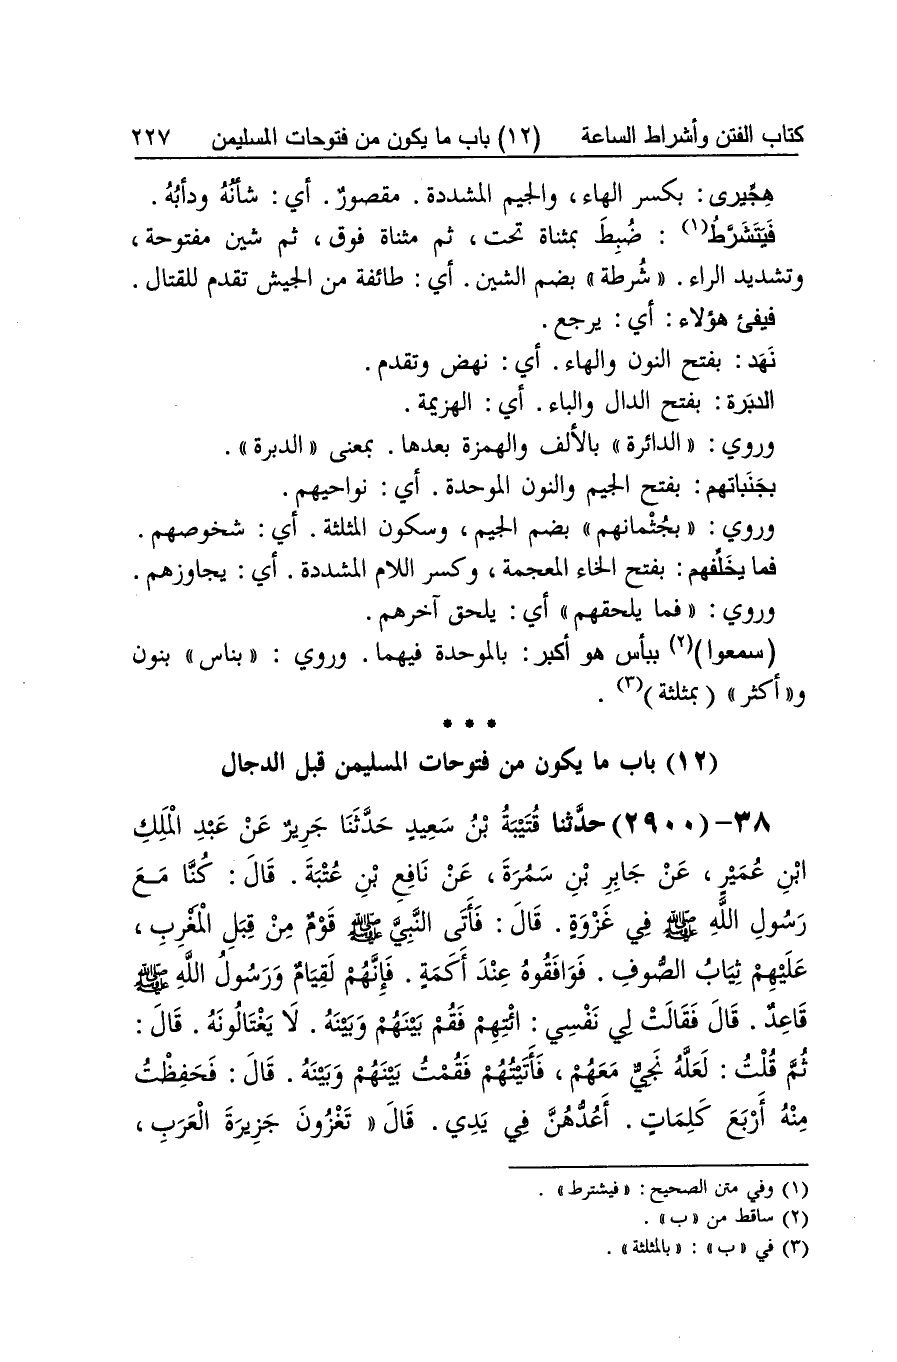 كتاب الفتن وأشراط الساعة (١٢) باب ما يكون من فتوحات المسليمن ٢٢٧
هِجِّيرى : بكسر الهاء ، والجيم المشددة . مقصورٌ . أي : شأنُهُ ودأبُهُ .
فَيَتَشَرَّطُ(١) : ضُبِطَ بمثناة تحت ، ثم مثناة فوق ، ثم شين مفتوحة ،
وتشديد الراء . « شُرطة » بضم الشين . أي : طائفة من الجيش تقدم للقتال .
فيفئ هؤلاء : أي : يرجع .
نَهَد : بفتح النون والهاء . أي : نهض وتقدم .
الدبَرة : بفتح الدال والباء . أي : الهزيمة .
وروي : « الدائرة » بالألف والهمزة بعدها . بمعنى « الدبرة » .
بجَنَباتهم : بفتح الجيم والنون الموحدة . أي : نواحيهم .
وروي : « بجُثْمانهم » بضم الجيم ، وسكون المثلثة . أي : شخوصهم .
فما يخَلِّفهم : بفتح الخاء المعجمة ، وكسر اللام المشددة . أي : يجاوزهم .
وروي : « فما يلحقهم » أي : يلحق آخرهم .
(سمعوا)(٢) ببأس هو أكبر : بالموحدة فيهما . وروي : « بناس » بنون
و« أكثر » ( بمثلثة )(٣) .
* * *
(١٢) باب ما يكون من فتوحات المسليمن قبل الدجال
٣٨-(٢٩٠٠) حدَّثنا قُتَيْبَةُ بْنُ سَعِيدٍ حَدَّثَنَا جَرِيرٌ عَنْ عَبْدِ الْمَلِكِ
ابْنِ عُمَيْرٍ ، عَنْ جَابِرِ بْنِ سَمُرَةَ ، عَنْ نَافِعِ بْنِ عُتْبَةَ . قَالَ : كُنَّا مَعَ
رَسُولِ اللَّهِ ﷺ فِي غَزْوَةٍ . قَالَ : فَأَتَى النَّبِيَّ ﷺ قَوْمٌ مِنْ قِبَلِ الْمَغْرِبِ ،
عَلَيْهِمْ ثِيَابُ الصُّوفِ . فَوَافَقُوهُ عِنْدَ أَكَمَةٍ . فَإِنَّهُمْ لَقِيَامٌ وَرَسُولُ اللَّهِ ﷺ
قَاعِدٌ . قَالَ فَقَالَتْ لِي نَفْسِي : ائْتِهِمْ فَقُمْ بَيْنَهُمْ وَبَيْنَهُ . لَا يَغْتَالُونَهُ . قَالَ :
ثُمَّ قُلْتُ : لَعَلَّهُ نَجِيٌّ مَعَهُمْ ، فَأَتَيْتُهُمْ فَقُمْتُ بَيْنَهُمْ وَبَيْنَهُ . قَالَ : فَحَفِظْتُ
مِنْهُ أَرْبَعَ كَلِمَاتٍ . أَعُدُّهُنَّ فِي يَدِي . قَالَ « تَغْزُونَ جَزِيرَةَ الْعَرَبِ ،
(١) وفي متن الصحيح : « فيشترط » .
(٢) ساقط من « ب » .
(٣) في « ب » : « بالمثلثة » .